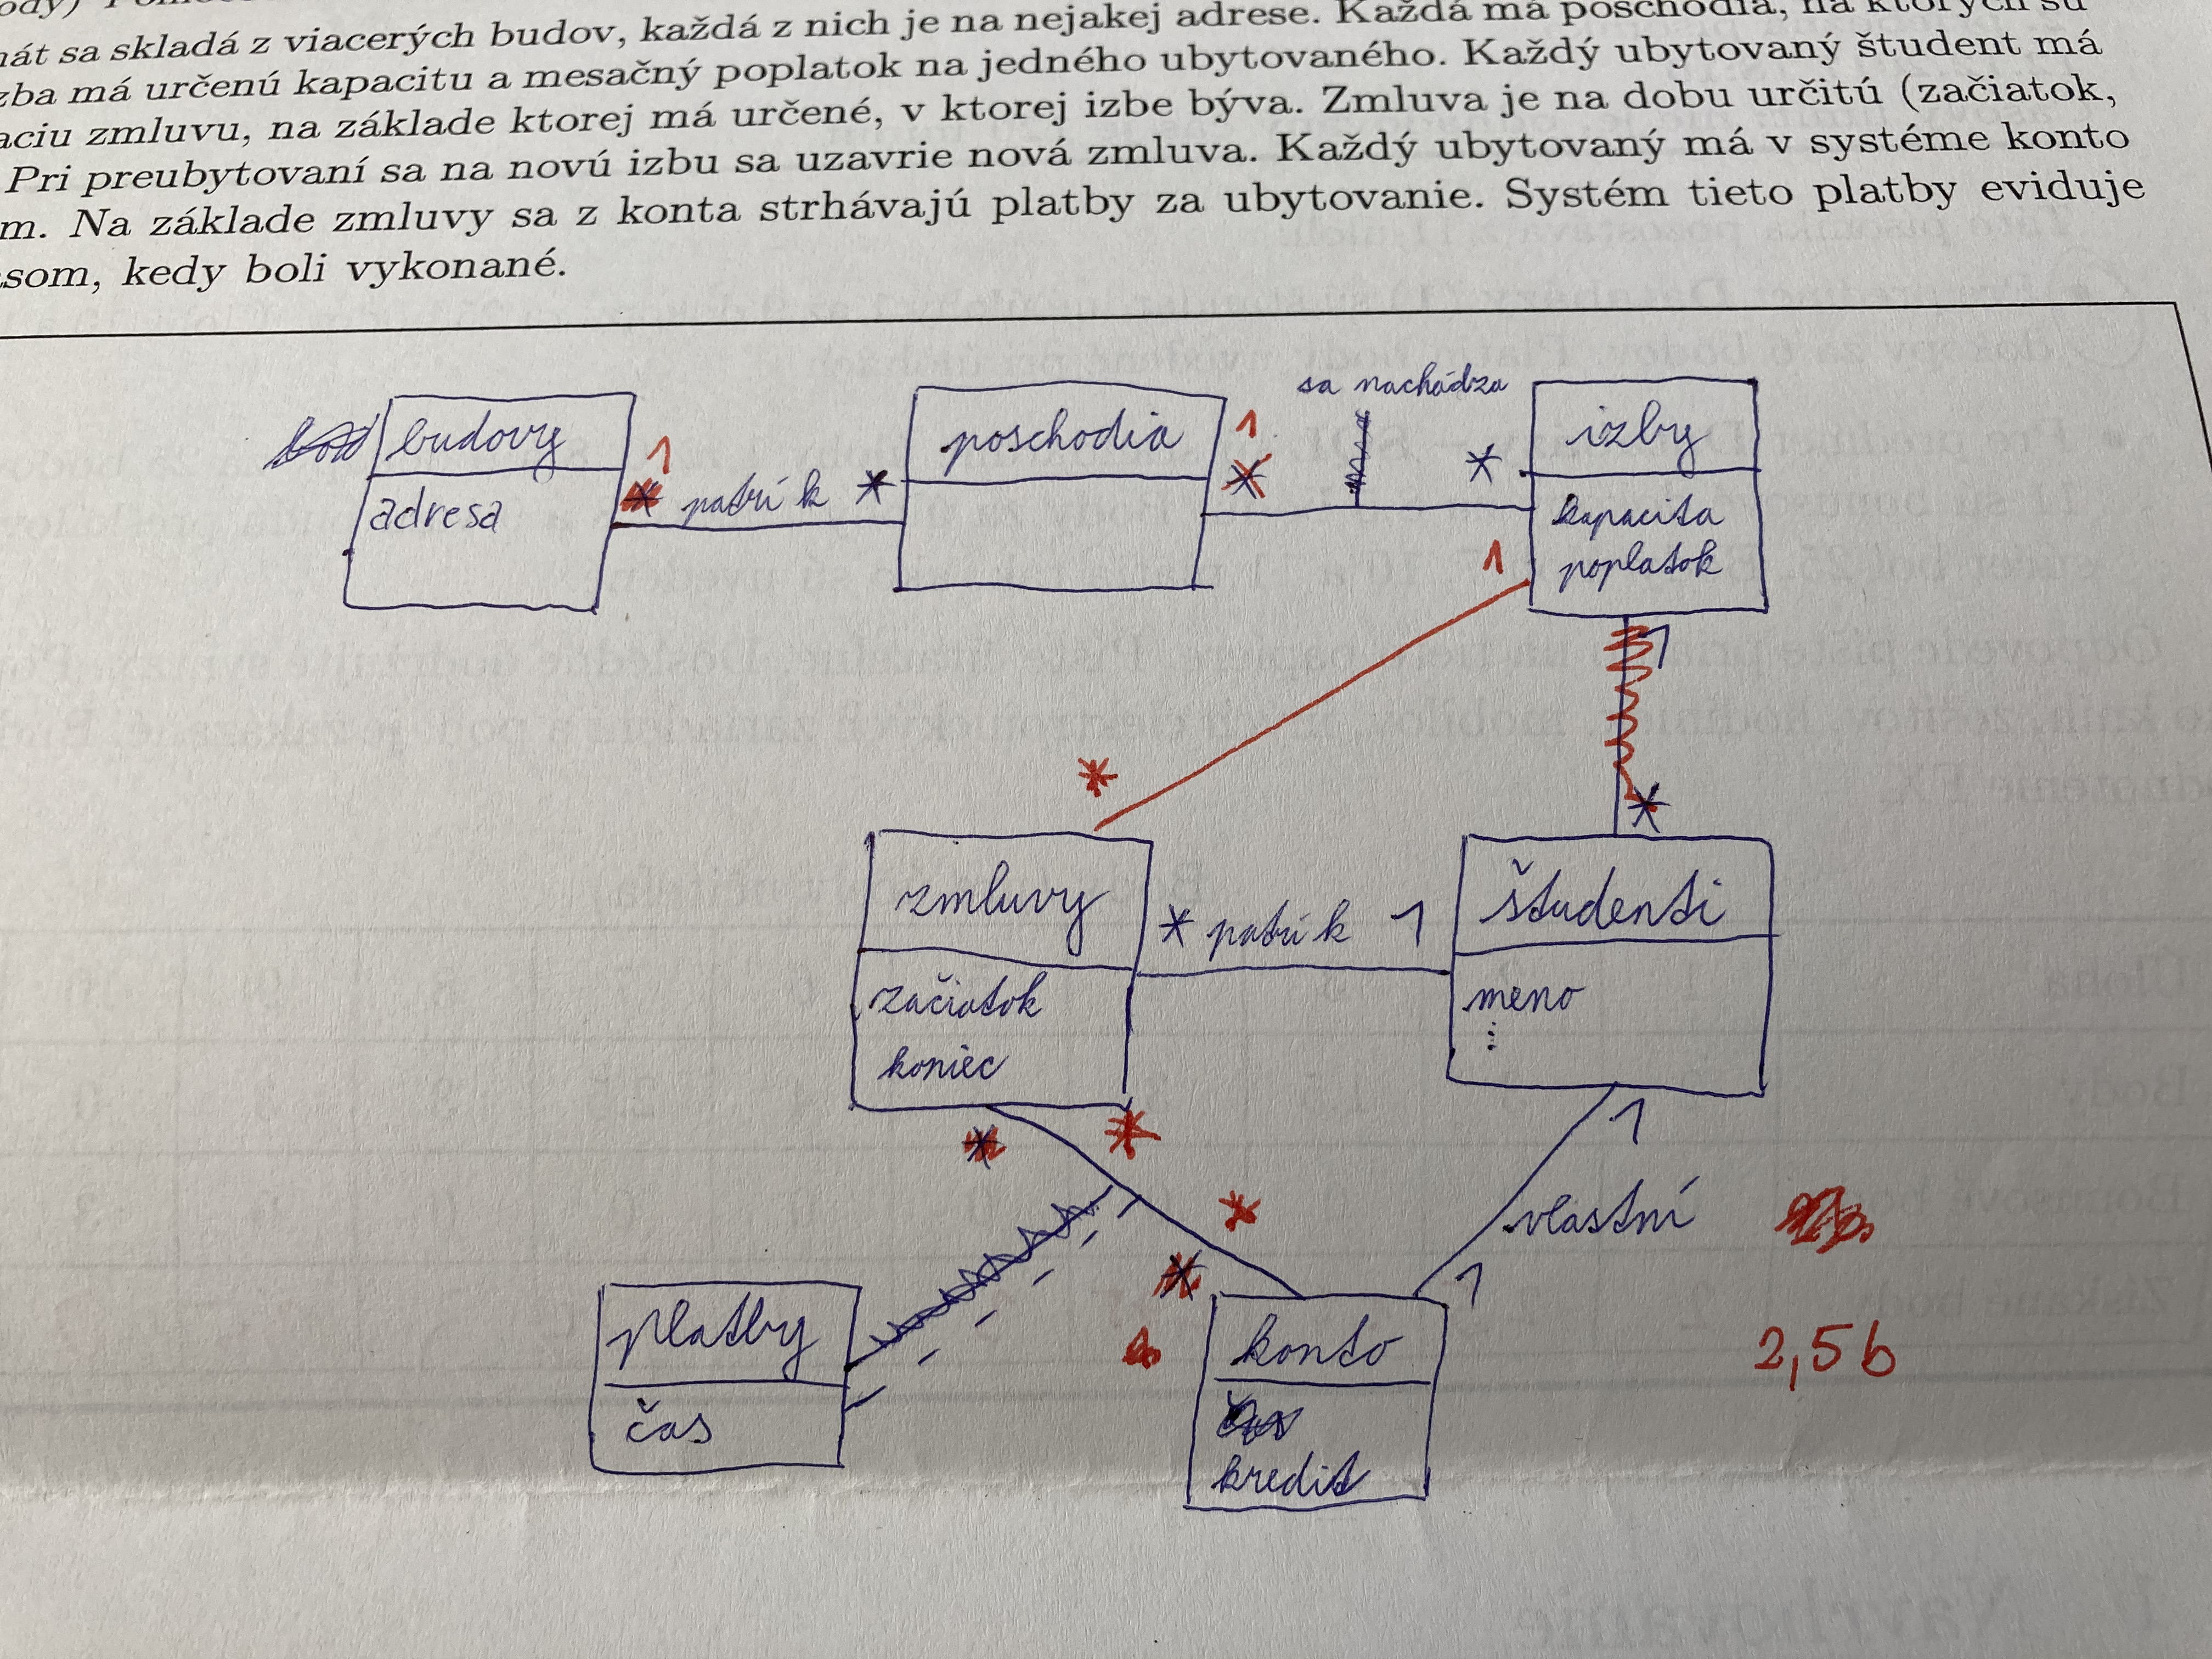 sa skladá z viacerých budov, každá z nich je na nejakej adrese. Každá má poschodia, na ktorých sú
má určenú kapacitu a mesačný poplatok na jedného ubytovaného. Každý ubytovaný študent má
zmluvu, na základe ktorej má určené, v ktorej izbe býva. Zmluva je na dobu určitú (začiatok,
Pri preubytovaní sa na novú izbu sa uzavrie nová zmluva. Každý ubytovaný má v systéme konto
m. Na základe zmluvy sa z konta strhávajú platby za ubytovanie. Systém tieto platby eviduje
som, kedy boli vykonané.
sa nachádza
budovy 1 poschodia 1 * izby
adresa * patrí k * * kapacita
1 poplatok
1
* *
zmluvy * patrí k 1 študenti
začiatok meno
koniec ...
* * 1
* vlastní
* 1
platby konto 2,5 b
čas kredit